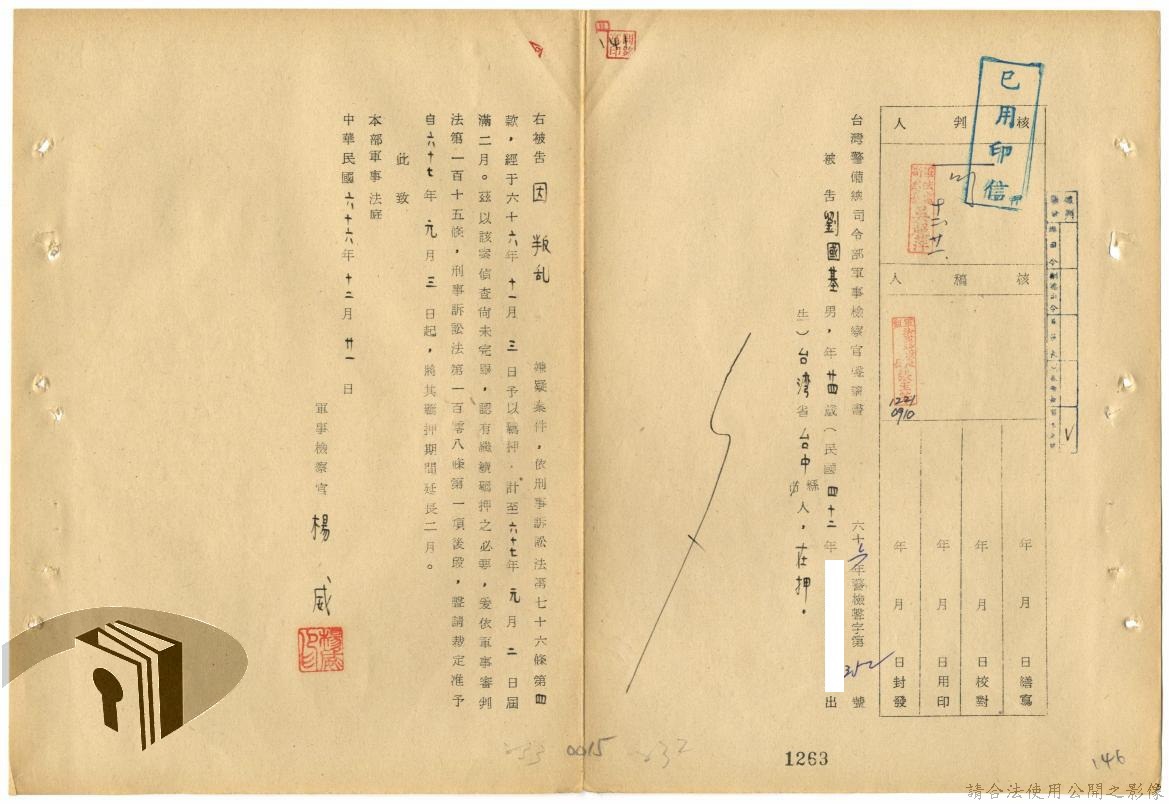 已用印信
核判人
十二廿一
核稿人
1221
0910
年 月 日繕寫
年 月 日校對
年 月 日用印
年 月 日封發
台灣警備總司令部軍事檢察官聲請書 六十六年警檢聲字第352號
被告劉國基男，年廿四歲（民國四十二年 出
生）台灣省台中縣人，在押。
右被告因叛乱 嫌疑案件，依刑事訴訟法第七十六條第四
款，經于六十六年十一月三日予以羈押，計至六十七年元月二日屆
滿二月。茲以該案偵查尚未完畢，認有繼續羈押之必要，爰依軍事審判
法第一百十五條，刑事訴訟法第一百零八條第一項後段，聲請裁定准予
自六十七年元月三日起，將其羈押期間延長二月。
此致
本部軍事法庭
中華民國六十六年十二月廿一日
軍事檢察官 楊威
楊威印
0015
1263
146
請合法使用公開之影像